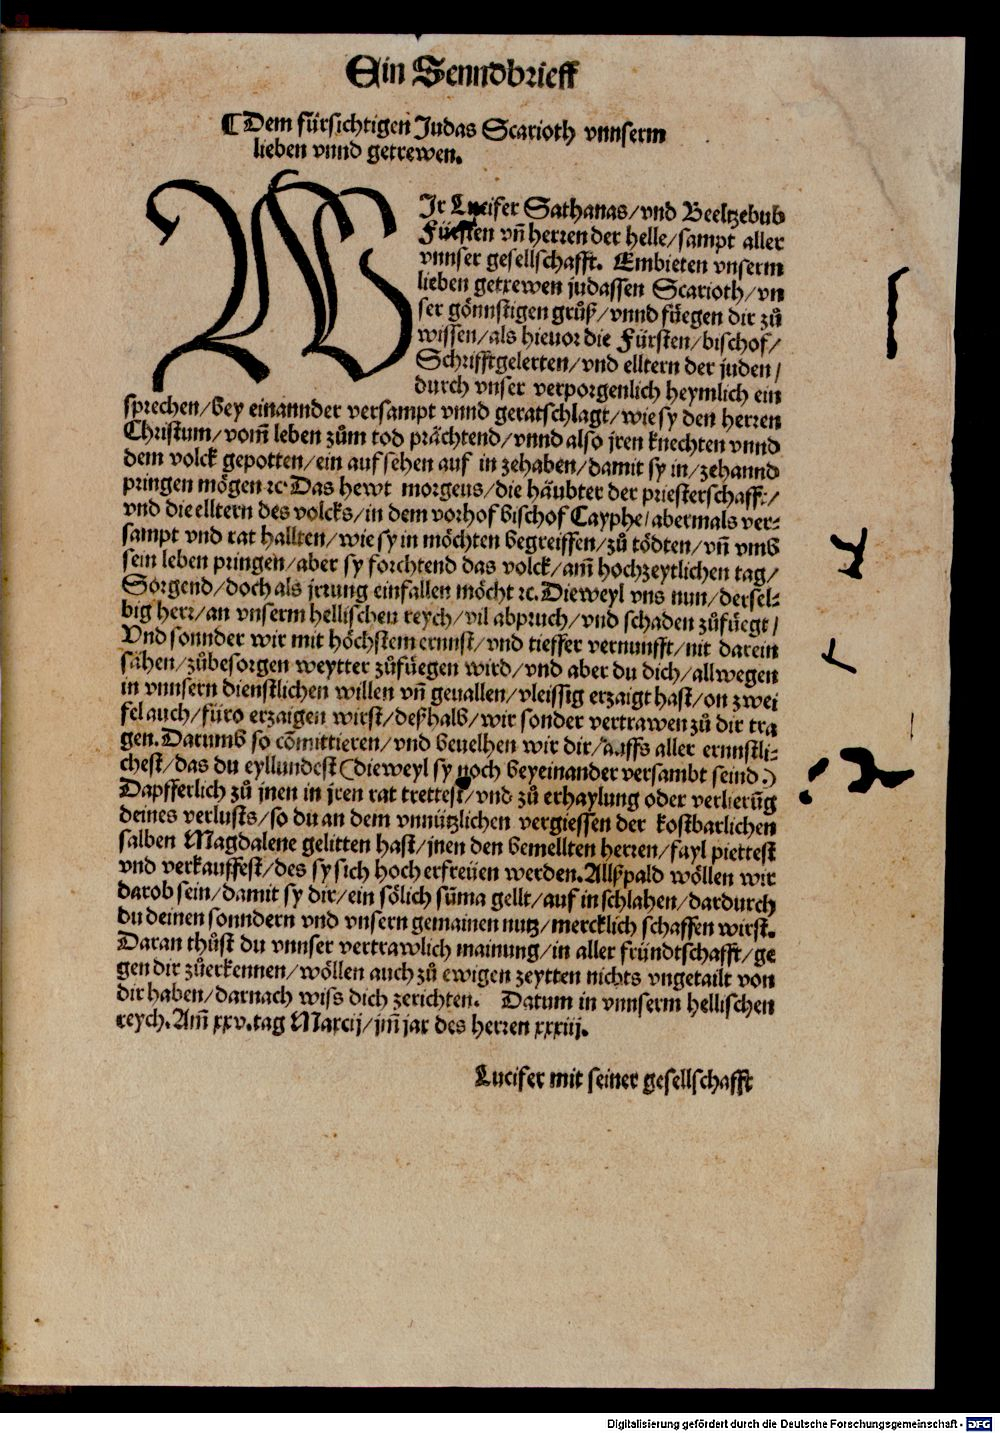 Ein Senndbrieff
¶ Dem fürsichtigen Judas Scarioth vnnserm
lieben vnnd getrewen.
WIr Lucifer Sathanas/vnd Beeltzebub
Fürsten vn̄ herren der helle/sampt aller
vnnser gesellschafft. Embieten vnserm
lieben getrewen judassen Scarioth/vn
ser gönnstigen grůß/vnnd füegen dir zů
wissen/als hieuor die Fürsten/bischof/
Schrifftgelerten/vnd elltern der juden/
durch vnser verporgenlich heymlich ein
sprechen/bey einannder versampt vnnd geratschlagt/wie sy den herren
Christum/vom̄ leben zům tod prächtend/vnnd also jren knechten vnnd
dem volck gepotten/ein auf sehen auf in zehaben/damit sy in/zehannd
pringen mögen ꝛc Das hewt morgens/die häubter der priesterschafft/
vnd die elltern des volcks/in dem vorhof bischof Cayphe/abermals ver-
sampt vnd rat hallten/wie sy in möchten begreiffen/zů tödten/vn̄ vmb
sein leben pringen/aber sy forchtend das volck/am̄ hochzeytlichen tag/
Sorgend/doch als jrrung einfallen möcht ꝛc. Dieweyl vns nun/dersel-
big herr/an vnserm hellischen reych/vil abpruch/vnd schaden zůfüegt/
Vnd sonnder wir mit höchstem ernnst/vnd tieffer vernunfft/nit darein
sähen/zůbesorgen weytter zůfüegen wird/vnd aber du dich/allwegen
in vnnsern dienstlichen willen vn̄ geuallen/vleissig erzaigt hast/on zwei
fel auch/füro erzaigen wirst/deßhalb/wir sonder vertrawen zů dir tra
gen. Darumb so cōmittieren/vnd beuelhen wir dir/auffs aller ernnstli-
chest/das du eyllundest (dieweyl sy noch beyeinander versambt seind.)
Dapfferlich zů jnen in jren rat trettest/vnd zů erhaylung oder verlierūg
deines verlusts/so du an dem vnnützlichen vergiessen der kostbarlichen
salben Magdalene gelitten hast/jnen den bemellten herren/fayl piettest
vnd verkauffest/des sy sich hoch erfreüen werden. Allßpald wöllen wir
darob sein/damit sy dir/ein sölich sūma gellt/auf in schlahen/dardurch
du deinen sonndern vnd vnsern gemainen nutz/mercklich schaffen wirst.
Daran thůst du vnnser vertrawlich mainung/in aller fründtschafft/ge
gen dir zůerkennen/wöllen auch zů ewigen zeytten nichts vngetailt von
dir haben/darnach wiss dich zerichten. Datum in vnnserm hellischen
reych. Am̄ xxv. tag Marcij/jm̄ jar des herren xxxiij.
Lucifer mit seiner gesellschafft
Digitalisierung gefördert durch die Deutsche Forschungsgemeinschaft - DFG